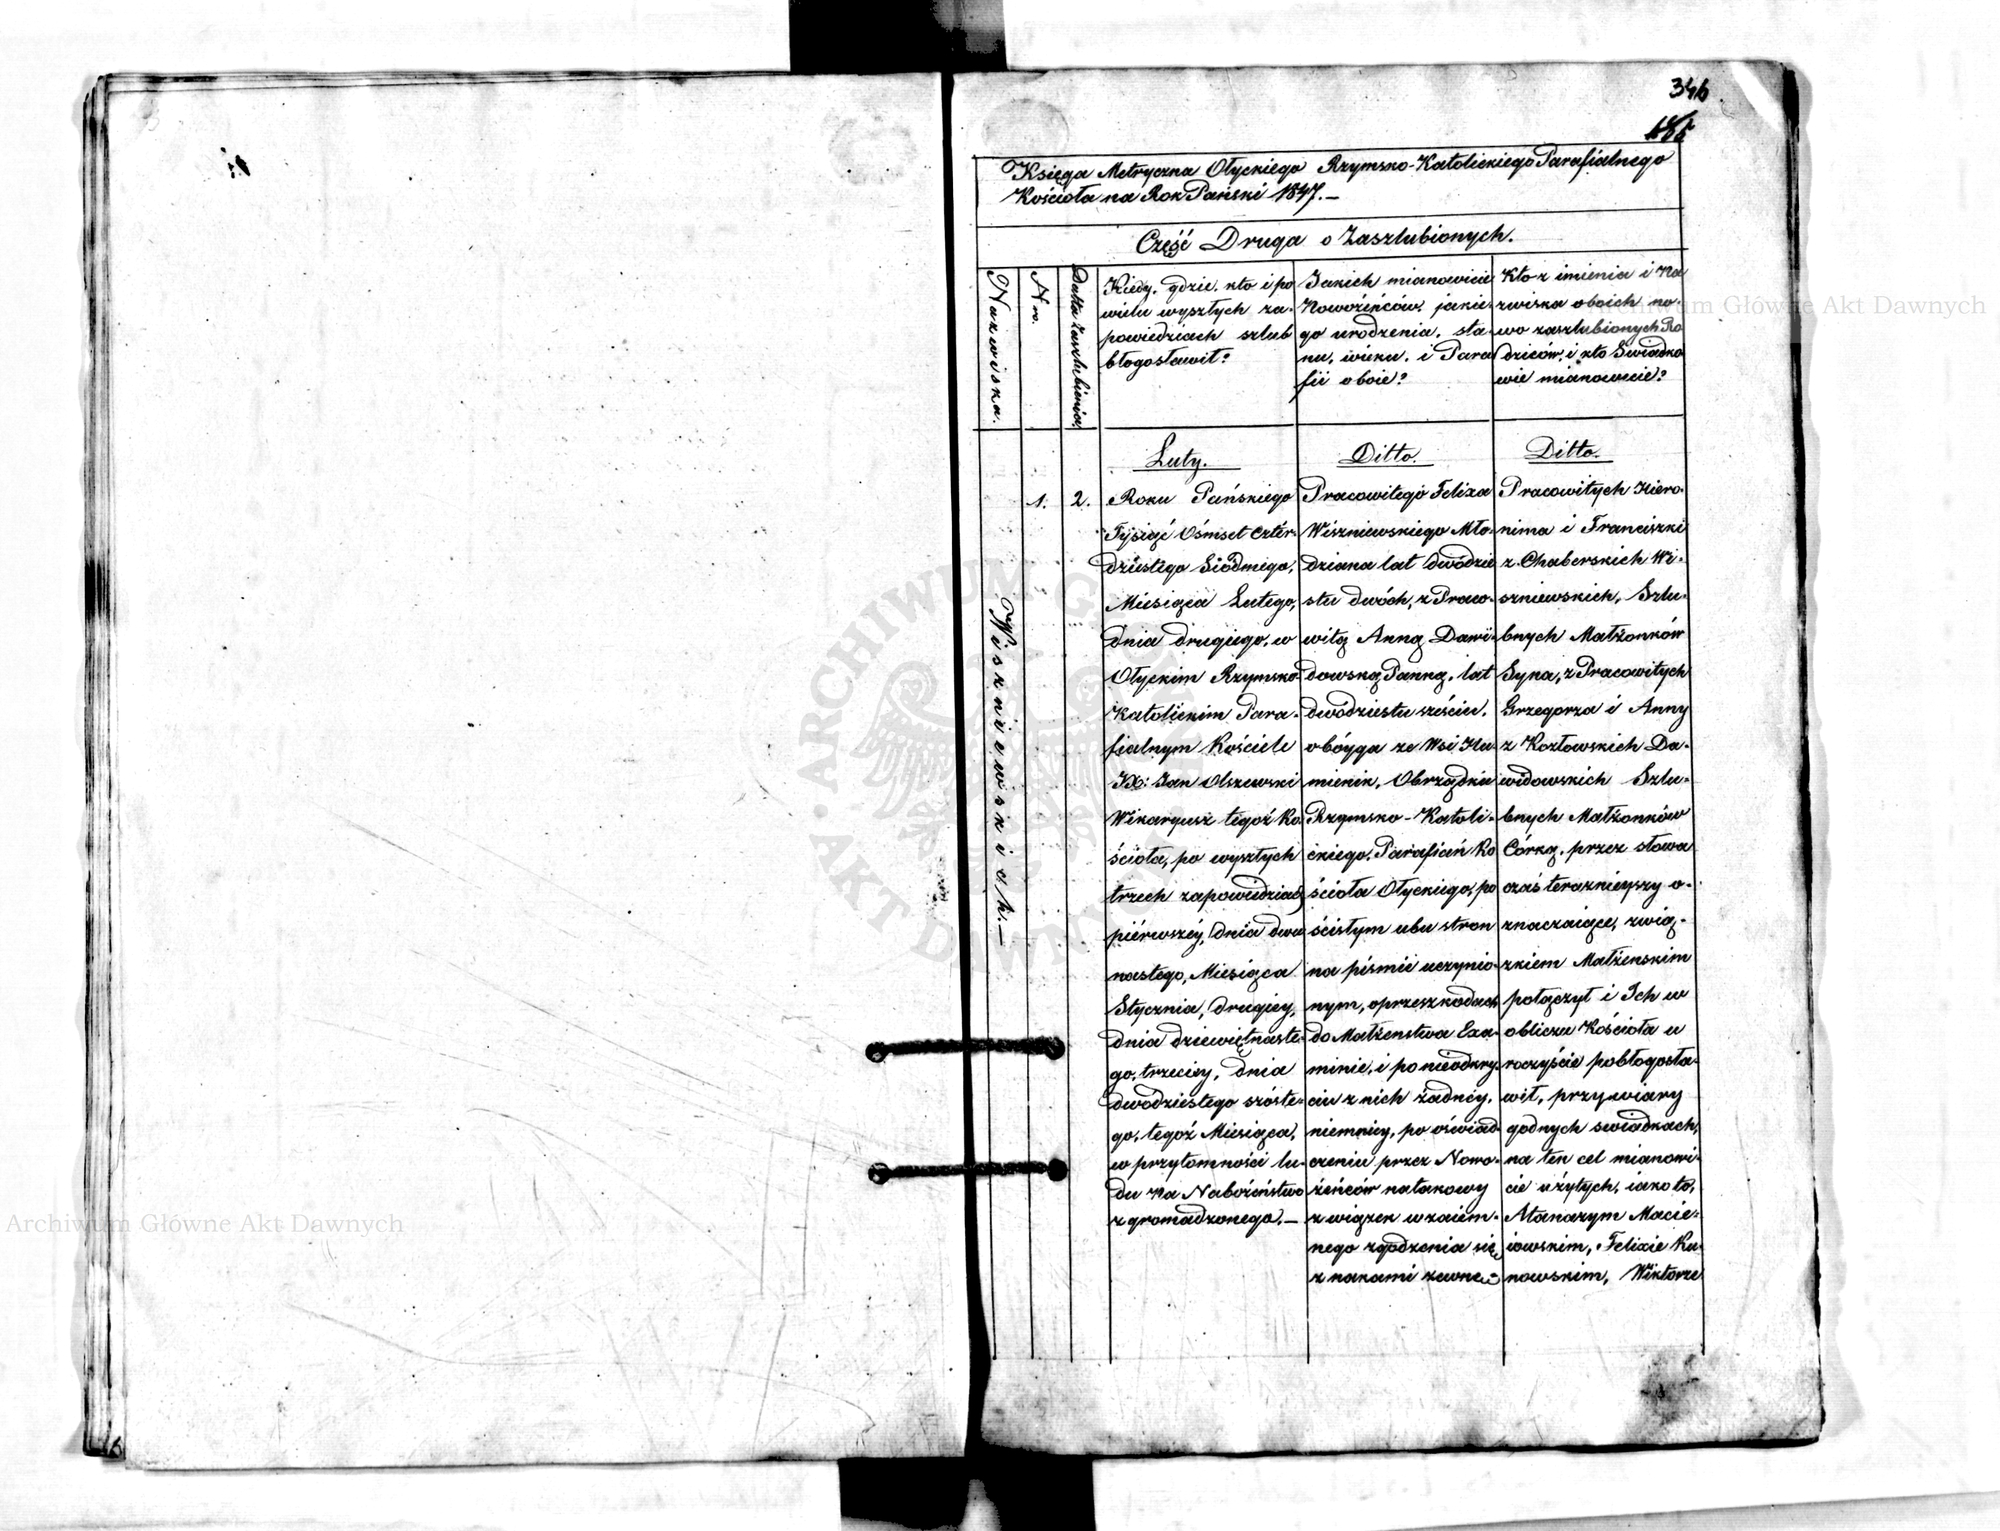 346
Księga Metryczna Ołyckiego Rzymsko-Katolickiego Parafialnego
Kościoła na Rok Pański 1847.—
Część Druga o Zaszlubionych.
Nazwiska.
Nro.
Datta Zaszlubienia.
Kiedy, gdzie, kto i po
wielu wyszłych za-
powiedziach szlub
błogosławił?
Jakich mianowicie
Nowożeńców, jakie-
go urodzenia, sta-
nu, wieku, i Para
fii oboie?
Kto z imienia i Na
zwiska oboich no-
wo zaszlubionych Ro
dziców, i kto Swiadko
wie mianowicie?
Wiszniewskich.—
1.
2.
Luty.
Roku Pańskiego
Tysiąć Ośmset Czter-
dziestego Siódmego,
Miesiąca Lutego,
dnia drugiego, w
Ołyckim Rzymsko
Katolickim Para-
fialnym Kościele
JX: Jan Olszewski
Wikaryusz tegoż Ko
ścioła, po wyszłych
trzech zapowiedziach
piérwszéy, dnia dwu
nastego, Miesiąca
Stycznia, drugiey,
dnia dziewiętnaste-
go, trzeciey, dnia
dwodziestego szóste-
go, tegoż Miesiąca,
w przytomności lu-
du na Nabożeństwo
zgromadzonego.—
Ditto.
Pracowitego Felixa
Wiszniewskiego Mło-
dziana lat dwódzie
stu dwóch, z Praco-
witą Anną Dawi-
dowską Panną, lat
dwódziestu sześciu,
obóyga ze Wsi Hu-
mienik, Obrządku
Rzymsko-Katoli-
ckiego, Parafian Ko
ścioła Ołyckiego, po
ścisłym ubu stron
na piśmie uczynio-
nym, o przeszkodach
do Małżenstwa Exa-
minie, i po nieodkry-
ciu z nich żadnéy,
niemniey, po oświad
czeniu przez Nowo-
żeńców na takowy
związek wzaiem-
nego zgodzenia się
znakami zewne-
Ditto.
Pracowitych Hiero-
nima i Franciszki
z Chaberskich Wi-
szniewskich, Szlu-
bnych Małżonków
Syna, z Pracowitych
Grzegorza i Anny
z Kozłowskich Da-
widowskich Szlu-
bnych Małżonków
Córką, przez słowa
czas teraznieyszy o-
znaczaiące, zwią-
zkiem Małżenskim
połączył i Ich w
obliczu Kościoła u
roczyście pobłogosła-
wił, przy wiary
godnych swiadkach,
na ten cel mianowi-
cie użytych, iako to,
Atanazym Macie-
iowskim, Felixie Ku-
nowskim, Wiktorze
Archiwum Główne Akt Dawnych
Archiwum Główne Akt Dawnych
ARCHIWUM GŁÓWNE AKT DAWNYCH